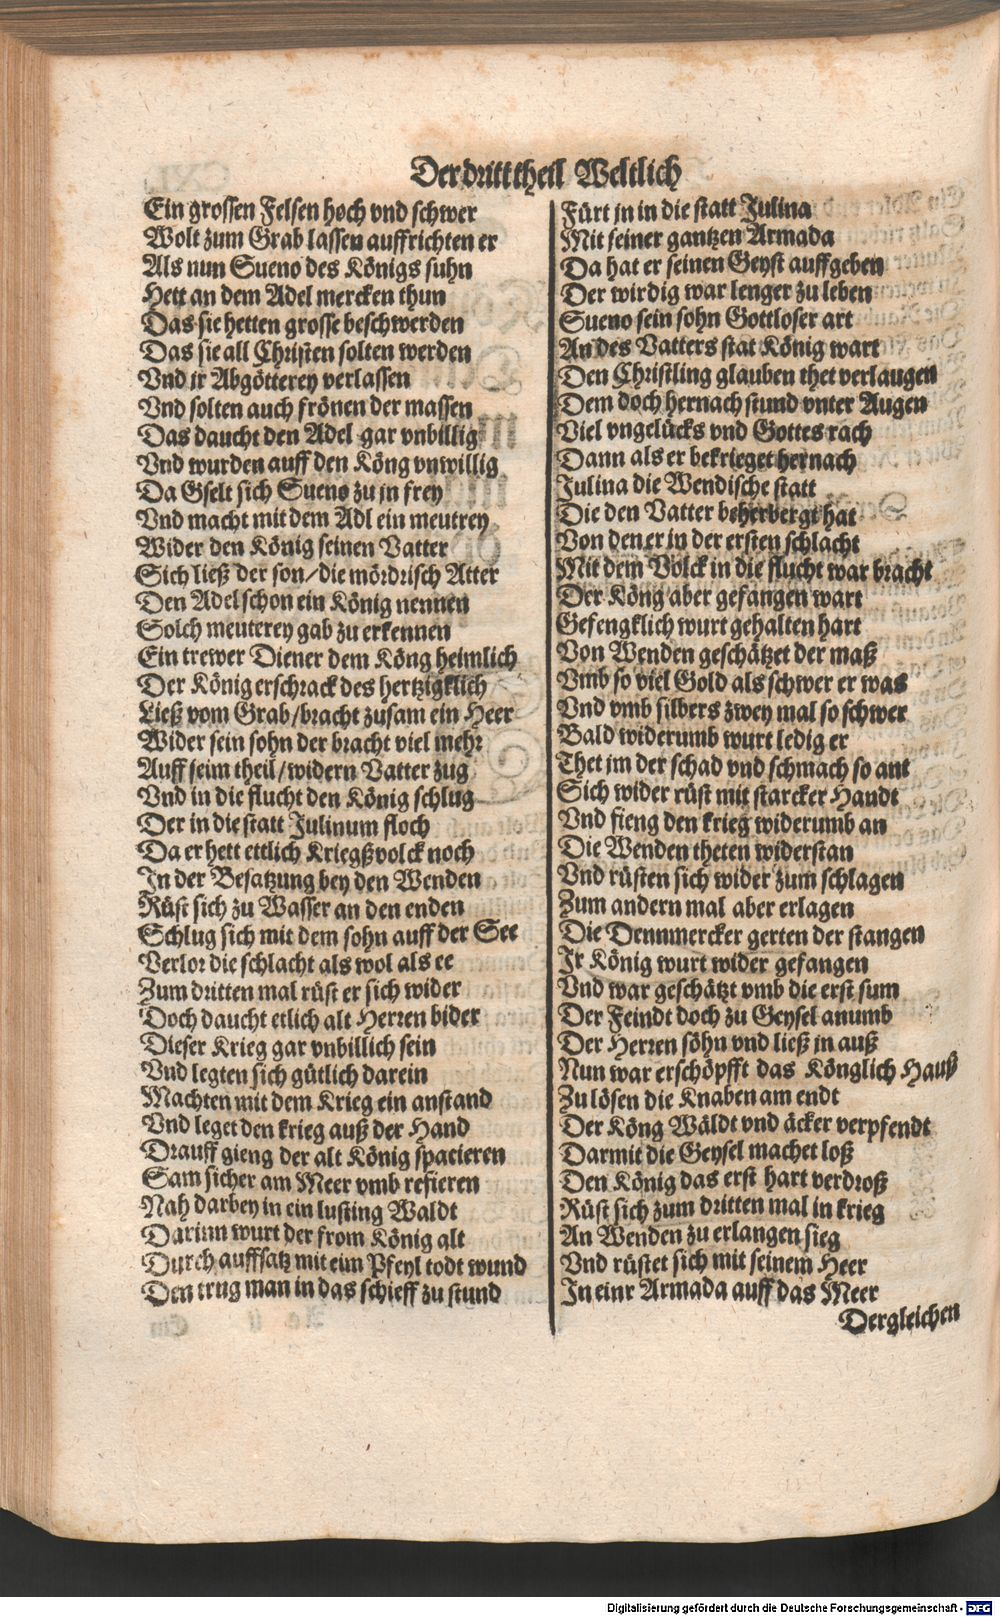 Der dritt theil Weltlich
Ein grossen Felsen hoch vnd schwer
Wolt zum Grab lassen auffrichten er
Als nun Sueno des Königs suhn
Hett an dem Adel mercken thun
Das sie hetten grosse beschwerden
Das sie all Christen solten werden
Vnd jr Abgötterey verlassen
Vnd solten auch frönen der massen
Das daucht den Adel gar vnbillig
Vnd wurden auff den Köng vnwillig
Da Gselt sich Sueno zu jn frey
Vnd macht mit dem Adl ein meutrey
Wider den König seinen Vatter
Sich ließ der son/die mördrisch Atter
Den Adel schon ein König nennen
Solch meuterey gab zu erkennen
Ein trewer Diener dem Köng heimlich
Der König erschrack des hertzigklich
Ließ vom Grab/bracht zusam ein Heer
Wider sein sohn der bracht viel mehr
Auff seim theil/widern Vatter zug
Vnd in die flucht den König schlug
Der in die statt Julinum floch
Da er hett ettlich Kriegßvolck noch
In der Besatzung bey den Wenden
Rüst sich zu Wasser an den enden
Schlug sich mit dem sohn auff der See
Verlor die schlacht als wol als ee
Zum dritten mal rüst er sich wider
Doch daucht etlich alt Herren bider
Dieser Krieg gar vnbillich sein
Vnd legten sich gütlich darein
Machten mit dem Krieg ein anstand
Vnd leget den krieg auß der Hand
Drauff gieng der alt König spacieren
Sam sicher am Meer vmb refieren
Nah darbey in ein lusting Waldt
Darinn wurt der from König alt
Durch auffsatz mit eim Pfeyl todt wund
Den trug man in das schieff zu stund
Fürt jn in die statt Julina
Mit seiner gantzen Armada
Da hat er seinen Geyst auffgeben
Der wirdig war lenger zu leben
Sueno sein sohn Gottloser art
An des Vatters stat König wart
Den Christling glauben thet verlaugen
Dem doch hernach stund vnter Augen
Viel vngelücks vnd Gottes rach
Dann als er bekrieget hernach
Julina die Wendische statt
Die den Vatter beherbergt hat
Von den er in der ersten schlacht
Mit dem Volck in die flucht war bracht
Der Köng aber gefangen wart
Gefengklich wurt gehalten hart
Von Wenden geschätzet der maß
Vmb so viel Gold als schwer er was
Vnd vmb silbers zwey mal so schwer
Bald widerumb wurt ledig er
Thet jm der schad vnd schmach so ant
Sich wider rüst mit starcker Handt
Vnd fieng den krieg widerumb an
Die Wenden theten widerstan
Vnd rüsten sich wider zum schlagen
Zum andern mal aber erlagen
Die Dennmercker gerten der stangen
Jr König wurt wider gefangen
Vnd war geschätzt vmb die erst sum
Der Feindt doch zu Geysel anumb
Der Herren söhn vnd ließ in auß
Nun war erschöpfft das Könglich Hauß
Zu lösen die Knaben am endt
Der Köng Wäldt vnd äcker verpfendt
Darmit die Geysel machet loß
Den König das erst hart verdroß
Rüst sich zum dritten mal in krieg
An Wenden zu erlangen sieg
Vnd rüstet sich mit seinem Heer
In einr Armada auff das Meer
Dergleichen
Digitalisierung gefördert durch die Deutsche Forschungsgemeinschaft - DFG